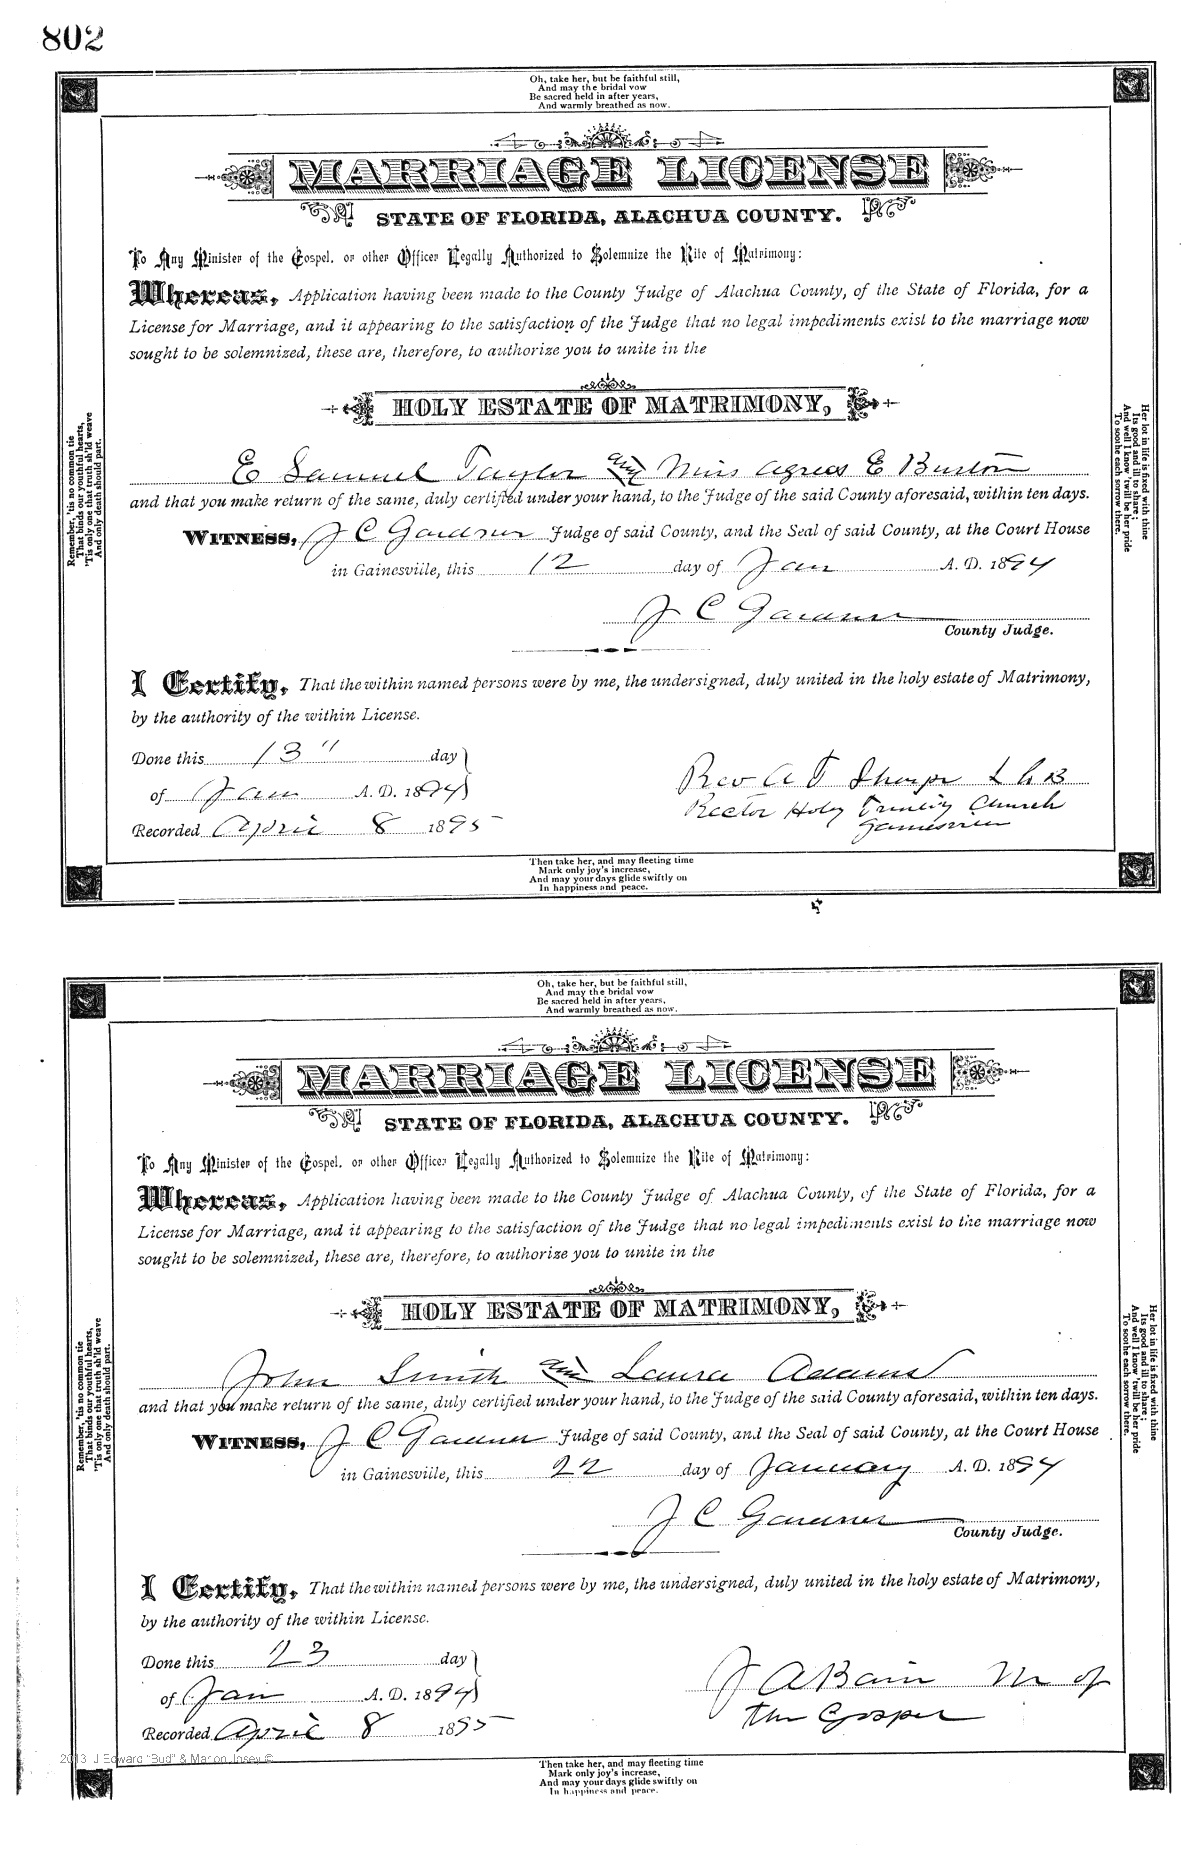 802
Oh, take her, but be faithful still,
And may the bridal vow
Be sacred held in after years,
And warmly breathed as now.
MARRIAGE LICENSE
STATE OF FLORIDA, ALACHUA COUNTY.
To Any Minister of the Gospel, or other Officer Legally Authorized to Solemnize the Rite of Matrimony:
Whereas, Application having been made to the County Judge of Alachua County, of the State of Florida, for a
License for Marriage, and it appearing to the satisfaction of the Judge that no legal impediments exist to the marriage now
sought to be solemnized, these are, therefore, to authorize you to unite in the
HOLY ESTATE OF MATRIMONY,
E Samuel Taylor and Miss Agnes E Burton
and that you make return of the same, duly certified under your hand, to the Judge of the said County aforesaid, within ten days.
WITNESS, J C Gardner Judge of said County, and the Seal of said County, at the Court House
in Gainesville, this 12 day of Jan A. D. 1894
J C Gardner
County Judge.
I Certify, That the within named persons were by me, the undersigned, duly united in the holy estate of Matrimony,
by the authority of the within License.
Done this 13" day
of Jan A. D. 1894
Recorded April 8 1895
Rev A T Sharpe
Rector Holy Trinity Church
Gainesville
Remember, 'tis no common tie
That binds our youthful hearts,
'Tis only one that truth sh'ld weave
And only death should part.
Her lot in life is fixed with thine
Its good and ill to share;
And well I know 'twill be her pride
To soothe each sorrow there.
Then take her, and may fleeting time
Mark only joy's increase,
And may your days glide swiftly on
In happiness and peace.
Oh, take her, but be faithful still,
And may the bridal vow
Be sacred held in after years,
And warmly breathed as now.
MARRIAGE LICENSE
STATE OF FLORIDA, ALACHUA COUNTY.
To Any Minister of the Gospel, or other Officer Legally Authorized to Solemnize the Rite of Matrimony:
Whereas, Application having been made to the County Judge of Alachua County, of the State of Florida, for a
License for Marriage, and it appearing to the satisfaction of the Judge that no legal impediments exist to the marriage now
sought to be solemnized, these are, therefore, to authorize you to unite in the
HOLY ESTATE OF MATRIMONY,
John Smith and Laura Adams
and that you make return of the same, duly certified under your hand, to the Judge of the said County aforesaid, within ten days.
WITNESS, J C Gardner Judge of said County, and the Seal of said County, at the Court House
in Gainesville, this 22 day of January A. D. 1894
J C Gardner
County Judge.
I Certify, That the within named persons were by me, the undersigned, duly united in the holy estate of Matrimony,
by the authority of the within License.
Done this 23 day
of Jan A. D. 1894
Recorded April 8 1895
J A Bain M of
the Gosper
Remember, 'tis no common tie
That binds our youthful hearts,
'Tis only one that truth sh'ld weave
And only death should part.
Her lot in life is fixed with thine
Its good and ill to share;
And well I know 'twill be her pride
To soothe each sorrow there.
2013 J Edward "Bud" & Marion Josey ©
Then take her, and may fleeting time
Mark only joy's increase,
And may your days glide swiftly on
In happiness and peace.